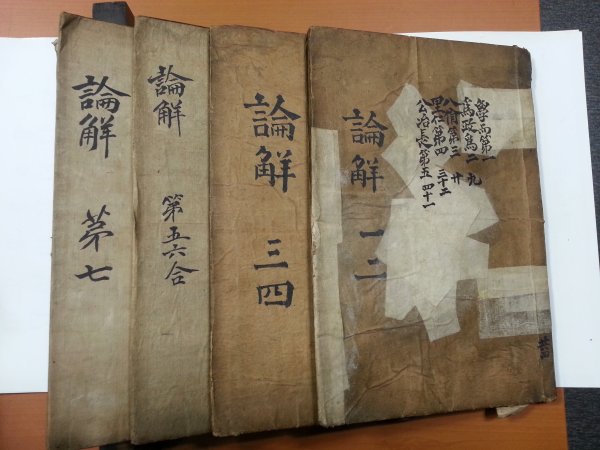 學而第一
為政第二 九
八佾第三 廿
里仁第四 三十二
公冶長第五 四十一
論解 一二
論解 三四
論解 第五六合
論解 第七